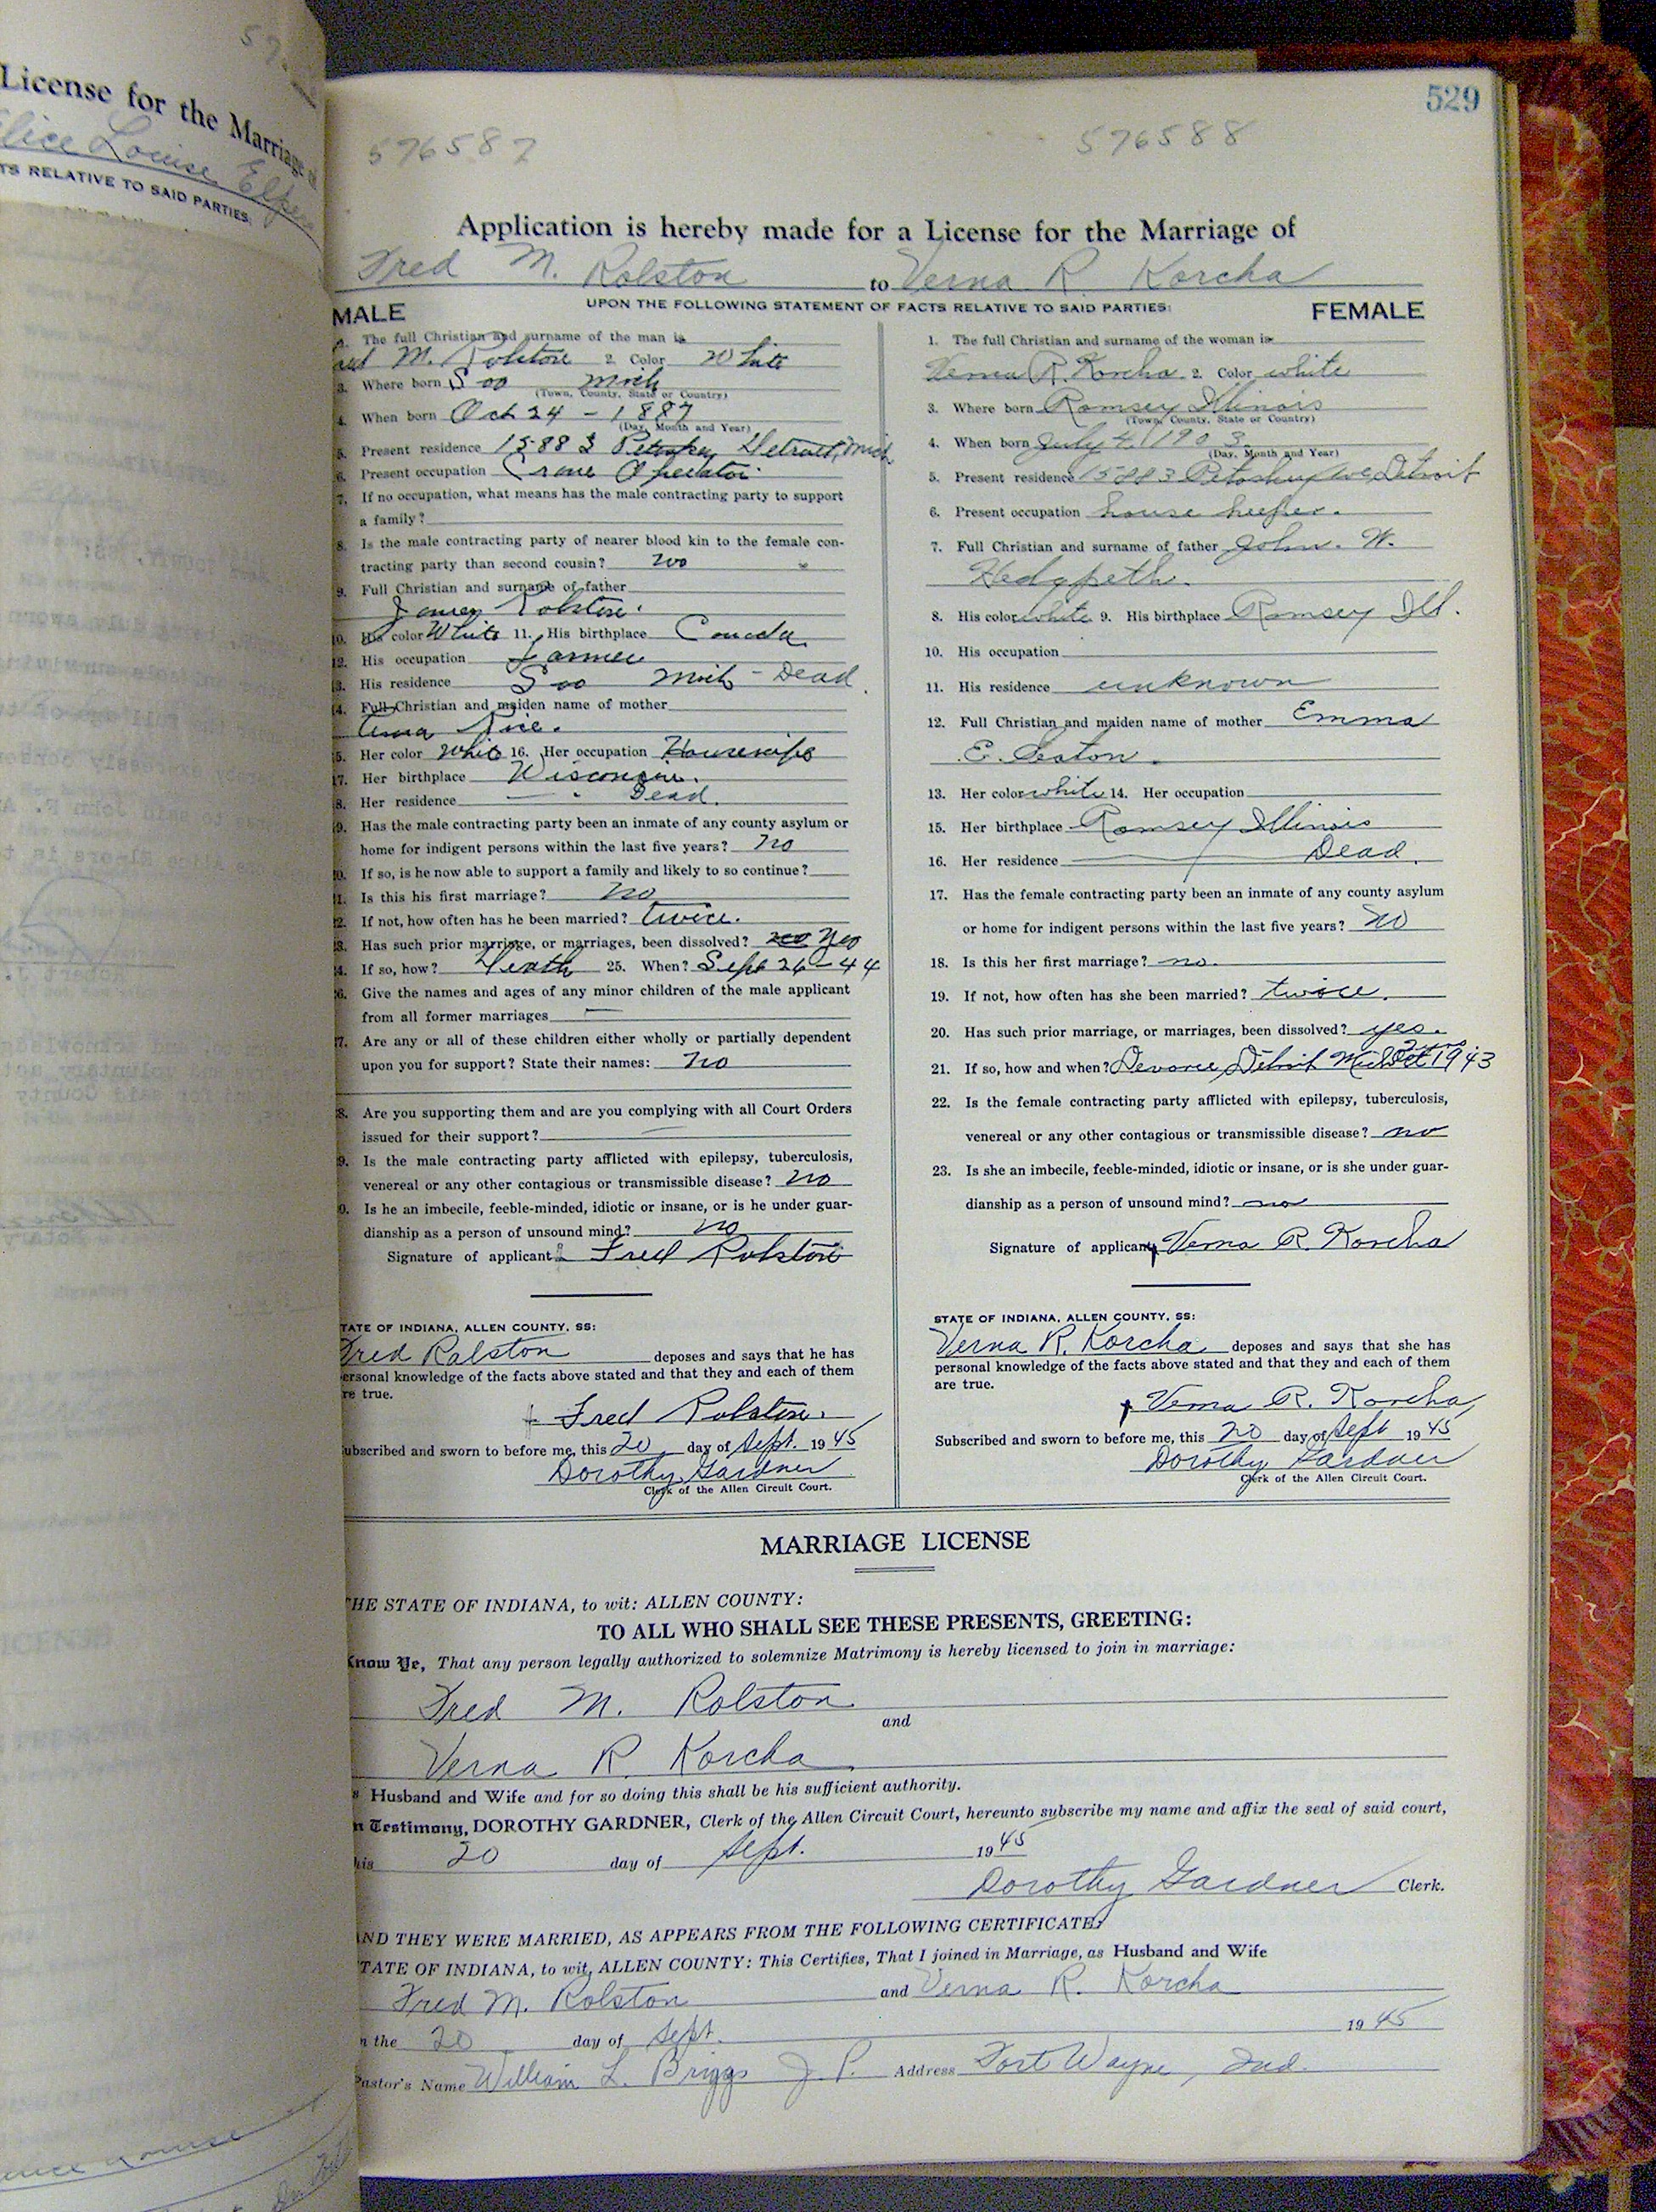 License for the Marriage of
Alice Louise
TS RELATIVE TO SAID PARTIES:
529
576587
576588
Application is hereby made for a License for the Marriage of
Fred M. Rolston to Verna R. Korcha
UPON THE FOLLOWING STATEMENT OF FACTS RELATIVE TO SAID PARTIES:
MALE
1. The full Christian and surname of the man is
M. Rolston 2. Color White
3. Where born Soo Mich
(Town, County, State or Country)
4. When born Oct 24 - 1887
(Day, Month and Year)
5. Present residence 15883 Petoskey Detroit, Mich.
6. Present occupation Crane Operator
7. If no occupation, what means has the male contracting party to support
a family?
8. Is the male contracting party of nearer blood kin to the female con-
tracting party than second cousin? no
9. Full Christian and surname of father
James Rolston.
10. His color White 11. His birthplace Canada
12. His occupation Farmer
13. His residence Soo Mich - Dead.
14. Full Christian and maiden name of mother
Rice.
15. Her color White 16. Her occupation Housewife
17. Her birthplace Wisconsin.
18. Her residence — Dead.
19. Has the male contracting party been an inmate of any county asylum or
home for indigent persons within the last five years? no
20. If so, is he now able to support a family and likely to so continue?
21. Is this his first marriage? no
22. If not, how often has he been married? twice.
23. Has such prior marriage, or marriages, been dissolved? no yes
24. If so, how? Death 25. When? Sept 26-44
26. Give the names and ages of any minor children of the male applicant
from all former marriages —
27. Are any or all of these children either wholly or partially dependent
upon you for support? State their names: no
28. Are you supporting them and are you complying with all Court Orders
issued for their support? —
29. Is the male contracting party afflicted with epilepsy, tuberculosis,
venereal or any other contagious or transmissible disease? no
30. Is he an imbecile, feeble-minded, idiotic or insane, or is he under guar-
dianship as a person of unsound mind? no
Signature of applicant Fred Rolston
STATE OF INDIANA, ALLEN COUNTY, SS:
Fred Ralston deposes and says that he has
personal knowledge of the facts above stated and that they and each of them
are true.
Fred Rolston.
Subscribed and sworn to before me, this 20 day of Sept. 1945
Dorothy Gardner
Clerk of the Allen Circuit Court.
FEMALE
1. The full Christian and surname of the woman is
Verna R. Korcha 2. Color white
3. Where born Ramsey Illinois
(Town, County, State or Country)
4. When born July 4, 1903.
(Day, Month and Year)
5. Present residence 15883 Petoskey Ave Detroit
6. Present occupation house keeper.
7. Full Christian and surname of father John. W.
Hedgpeth.
8. His color white 9. His birthplace Ramsey Ill.
10. His occupation
11. His residence unknown
12. Full Christian and maiden name of mother Emma
E. Seaton.
13. Her color white 14. Her occupation
15. Her birthplace Ramsey Illinois
16. Her residence — Dead.
17. Has the female contracting party been an inmate of any county asylum
or home for indigent persons within the last five years? no
18. Is this her first marriage? no.
19. If not, how often has she been married? twice.
20. Has such prior marriage, or marriages, been dissolved? yes.
21. If so, how and when? Devorce, Detroit Mich Oct 1943
22. Is the female contracting party afflicted with epilepsy, tuberculosis,
venereal or any other contagious or transmissible disease? no
23. Is she an imbecile, feeble-minded, idiotic or insane, or is she under guar-
dianship as a person of unsound mind? no
Signature of applicant Verna R. Korcha
STATE OF INDIANA, ALLEN COUNTY, SS:
Verna R. Korcha deposes and says that she has
personal knowledge of the facts above stated and that they and each of them
are true.
Verna R. Korcha
Subscribed and sworn to before me, this 20 day of Sept 1945
Dorothy Gardner
Clerk of the Allen Circuit Court.
MARRIAGE LICENSE
THE STATE OF INDIANA, to wit: ALLEN COUNTY:
TO ALL WHO SHALL SEE THESE PRESENTS, GREETING:
Know Ye, That any person legally authorized to solemnize Matrimony is hereby licensed to join in marriage:
Fred M. Rolston
and
Verna R. Korcha
Husband and Wife and for so doing this shall be his sufficient authority.
In Testimony, DOROTHY GARDNER, Clerk of the Allen Circuit Court, hereunto subscribe my name and affix the seal of said court,
this 20 day of Sept. 1945
Dorothy Gardner Clerk.
AND THEY WERE MARRIED, AS APPEARS FROM THE FOLLOWING CERTIFICATE:
STATE OF INDIANA, to wit, ALLEN COUNTY: This Certifies, That I joined in Marriage, as Husband and Wife
Fred M. Rolston and Verna R. Korcha
on the 20 day of Sept. 1945
Pastor's Name William L. Briggs J. P. Address Fort Wayne, Ind.